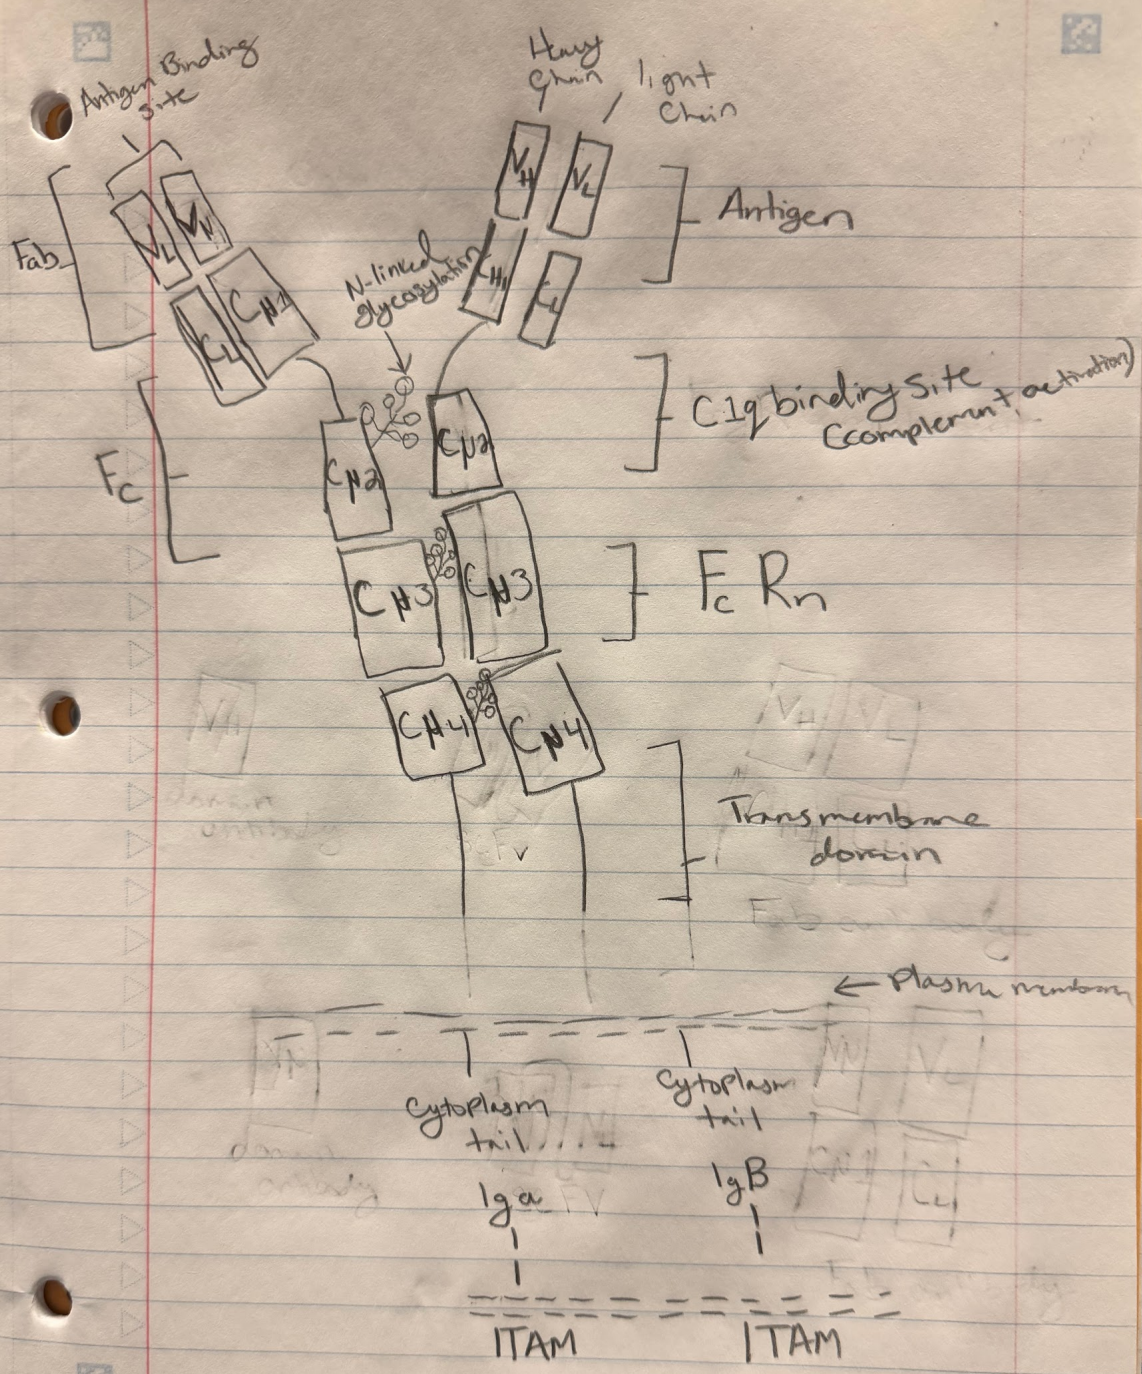 Antigen Binding
site
Heavy
Chain
light
Chain
Fab
VL
VH
VH
VL
Antigen
CL
CH1
N-linked
glycosylation
CH1
CL
Fc
CH2
CH2
C1q binding site
(complement activation)
CH3
CH3
FcRn
CH4
CH4
Transmembrane
domain
← Plasma membrane
Cytoplasm
tail
Cytoplasm
tail
Iga
IgB
ITAM
ITAM